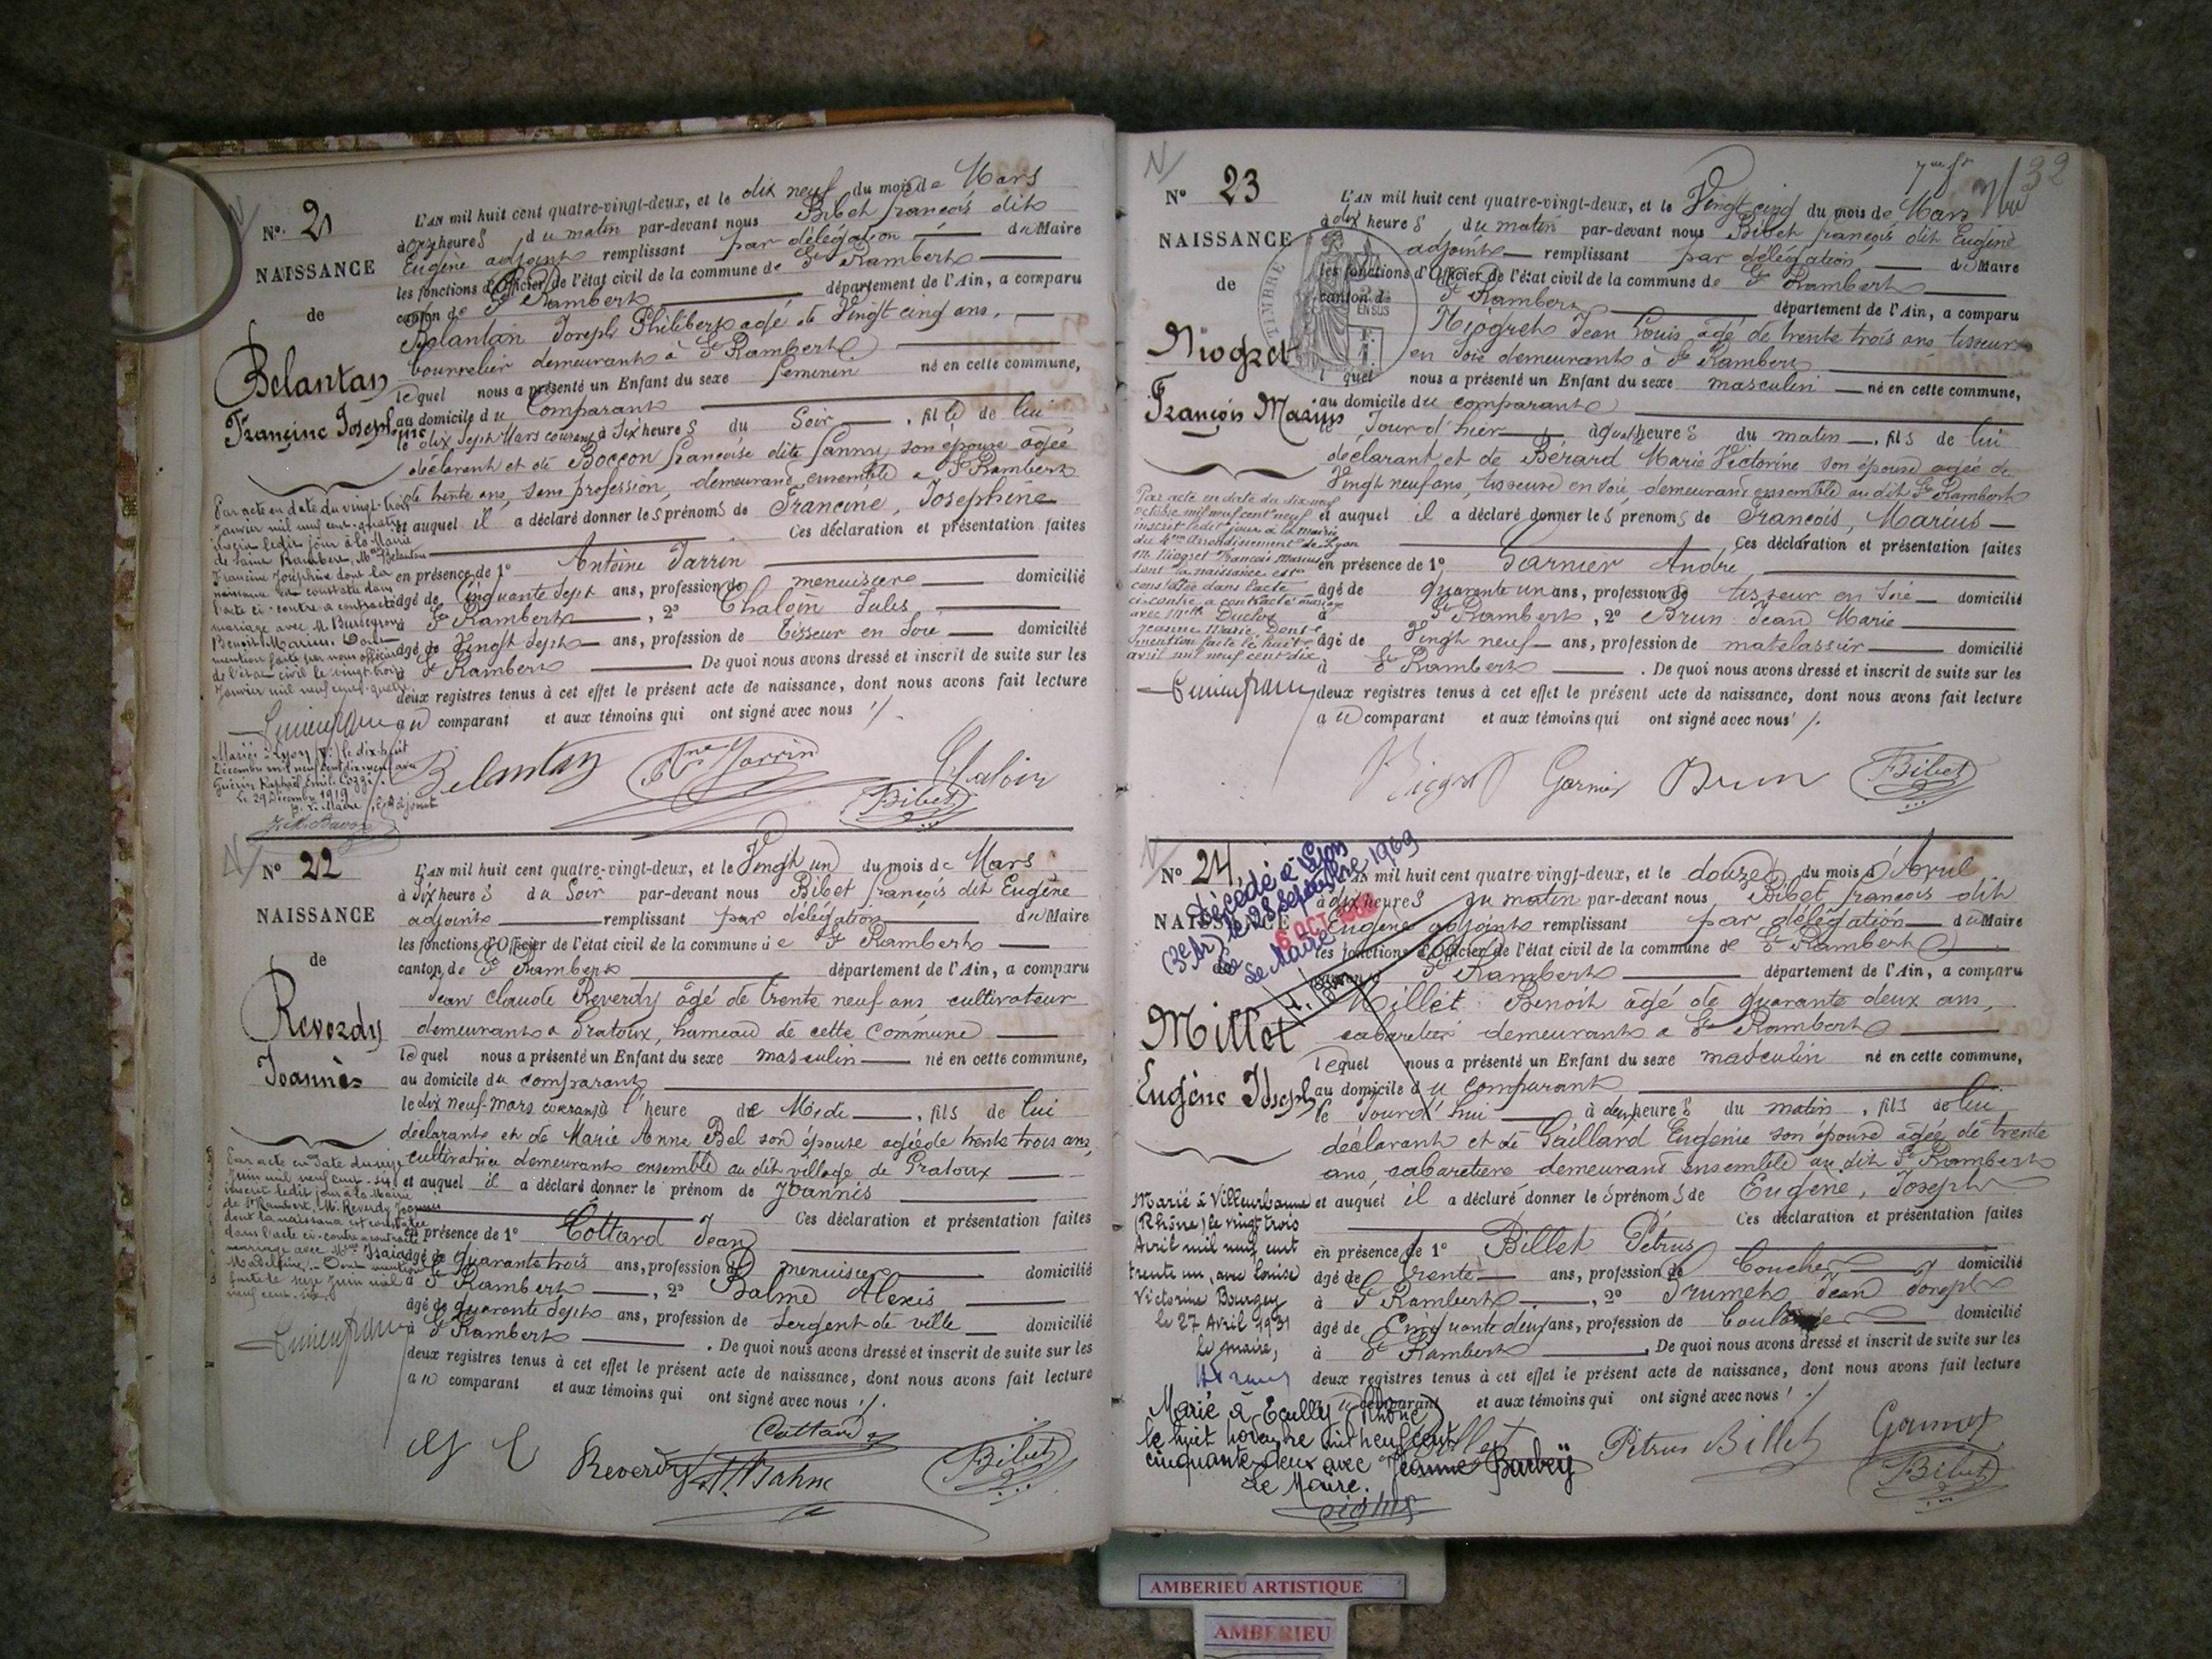 N° 21
NAISSANCE
de
Belantan
Francine Joséphine
L'AN mil huit cent quatre-vingt-deux, et le dix neuf du mois de Mars
à onze heures du matin par-devant nous Bibet françois dit
Eugène adjoint remplissant par délégation du Maire
les fonctions d'Officier de l'état civil de la commune de St Rambert
canton de St Rambert département de l'Ain, a comparu
Belantan Joseph Philibert agé de Vingt cinq ans,
bourrelier demeurant à St Rambert
lequel nous a présenté un Enfant du sexe féminin né en cette commune,
au domicile du Comparant
le dix sept Mars courant à six heures du Soir, fille de lui
déclarant et de Boccon françoise dite fanny, son épouse âgée
de trente ans, sans profession, demeurant ensemble à St Rambert
et auquel il a déclaré donner les prénoms de Francine, Joséphine
Ces déclaration et présentation faites
en présence de 1° Antoine Jarrin
âgé de Cinquante sept ans, profession de menuisier domicilié
à St Rambert, 2° Chaloin Jules
âgé de Vingt sept ans, profession de Tisseur en soie domicilié
à St Rambert De quoi nous avons dressé et inscrit de suite sur les
deux registres tenus à cet effet le présent acte de naissance, dont nous avons fait lecture
au comparant et aux témoins qui ont signé avec nous
Par acte en date du vingt-trois
Janvier mil neuf cent-quatre
inscrit ledit jour à la Mairie
de Saint Rambert, Mlle Belantan
Francine Joséphine dont la
naissance est constatée dans
l'acte ci-contre a contracté
mariage avec M.
Benoit Marius. Dont
mention faite par nous officier
de l'état civil le vingt-trois
Janvier mil neuf cent-quatre
Mariée à Lyon le dix-huit
Décembre mil neuf cent dix neuf avec
Guérin Raphaël Emile Cozzi
Le 29 Décembre 1919
P. Le Maire, l'Adjoint
Belantan Jarrin Chaloin
Bibet
N° 22
NAISSANCE
de
Reverdy
Joannès
L'AN mil huit cent quatre-vingt-deux, et le Vingt un du mois de Mars
à Six heures du Soir par-devant nous Bibet françois dit Eugène
adjoint remplissant par délégation du Maire
les fonctions d'Officier de l'état civil de la commune de St Rambert
canton de St Rambert département de l'Ain, a comparu
Jean Claude Reverdy âgé de trente neuf ans cultivateur
demeurant à Gratoux, hameau de cette Commune
lequel nous a présenté un Enfant du sexe masculin né en cette commune,
au domicile du comparant
le dix neuf Mars courant à l'heure de Midi, fils de lui
déclarant et de Marie Anne Bel son épouse agée de trente trois ans,
cultivatrice demeurant ensemble au dit village de Gratoux
et auquel il a déclaré donner le prénom de Joannès
Ces déclaration et présentation faites
en présence de 1° Cottard Jean
âgé de quarante trois ans, profession de menuisier domicilié
à St Rambert, 2° Balme Alexis
âgé de quarante sept ans, profession de Sergent de ville domicilié
à St Rambert. De quoi nous avons dressé et inscrit de suite sur les
deux registres tenus à cet effet le présent acte de naissance, dont nous avons fait lecture
au comparant et aux témoins qui ont signé avec nous
Par acte en date du seize
Juin mil neuf cent-six
inscrit ledit jour à la Mairie
de St Rambert, M. Reverdy Joannès
dont la naissance est constatée
dans l'acte ci-contre a contracté
mariage avec Mlle
Madeleine. Dont mention
faite le seize Juin mil
neuf cent-six
Reverdy Cottard Balme Bibet
32
N° 23
NAISSANCE
de
Niogret
François Marius
TIMBRE
L'AN mil huit cent quatre-vingt-deux, et le Vingt cinq du mois de Mars
à dix heures du matin par-devant nous Bibet françois dit Eugène
adjoint remplissant par délégation du Maire
les fonctions d'Officier de l'état civil de la commune de St Rambert
canton de St Rambert département de l'Ain, a comparu
Niogret Jean Louis âgé de trente trois ans tisseur
en soie demeurant à St Rambert
lequel nous a présenté un Enfant du sexe masculin né en cette commune,
au domicile du comparant
Jour d'hier à quatre heures du matin, fils de lui
déclarant et de Bérard Marie Victorine son épouse agée de
Vingt neuf ans, tisseuse en soie demeurant ensemble au dit St Rambert
et auquel il a déclaré donner les prénoms de François, Marius
Ces déclaration et présentation faites
en présence de 1° Garnier André
âgé de quarante un ans, profession de tisseur en soie domicilié
à St Rambert, 2° Brun Jean Marie
âgé de Vingt neuf ans, profession de matelassier domicilié
à St Rambert. De quoi nous avons dressé et inscrit de suite sur les
deux registres tenus à cet effet le présent acte de naissance, dont nous avons fait lecture
au comparant et aux témoins qui ont signé avec nous
Par acte en date du dix-neuf
octobre mil neuf cent neuf
inscrit ledit jour à la mairie
du 4me Arrondissement de Lyon
M. Niogret François Marius
dont la naissance est
constatée dans l'acte
ci-contre a contracté mariage
avec Mlle Duclos
Jeanne Marie. Dont
mention faite le huit
avril mil neuf cent dix
Niogret Garnier Brun Bibet
N° 24
NAISSANCE
de
Millet
Eugène Joseph
Décédé à Lyon
(3e Ar) le 28 Septembre 1969
Le 6 OCT. 1969
Le Maire
L'AN mil huit cent quatre-vingt-deux, et le douze du mois d'Avril
à dix heures du matin par-devant nous Bibet françois dit
Eugène adjoint remplissant par délégation du Maire
les fonctions d'Officier de l'état civil de la commune de St Rambert
canton de St Rambert département de l'Ain, a comparu
Millet Benoit âgé de quarante deux ans,
cabaretier demeurant à St Rambert
lequel nous a présenté un Enfant du sexe masculin né en cette commune,
au domicile du comparant
le Jourd'hui à deux heures du matin, fils de lui
déclarant et de Gaillard Eugénie son épouse âgée de trente
ans, cabaretière demeurant ensemble au dit St Rambert
et auquel il a déclaré donner les prénoms de Eugène, Joseph
Ces déclaration et présentation faites
en présence de 1° Billet Pétrus
âgé de trente ans, profession de Boucher domicilié
à St Rambert, 2° Jean Joseph
âgé de Cinquante deux ans, profession de domicilié
à St Rambert. De quoi nous avons dressé et inscrit de suite sur les
deux registres tenus à cet effet le présent acte de naissance, dont nous avons fait lecture
au comparant et aux témoins qui ont signé avec nous
Marié à Villeurbanne
(Rhône) le vingt trois
Avril mil neuf cent
trente un, avec Louise
Victorine Bourgey
Le 27 Avril 1931
Le Maire,
Marié à Ecully (Rhône)
le huit novembre mil neuf cent
cinquante-deux avec Jeanne Barbey
Le Maire.
Millet Pétrus Billet
Bibet
AMBERIEU ARTISTIQUE
AMBERIEU